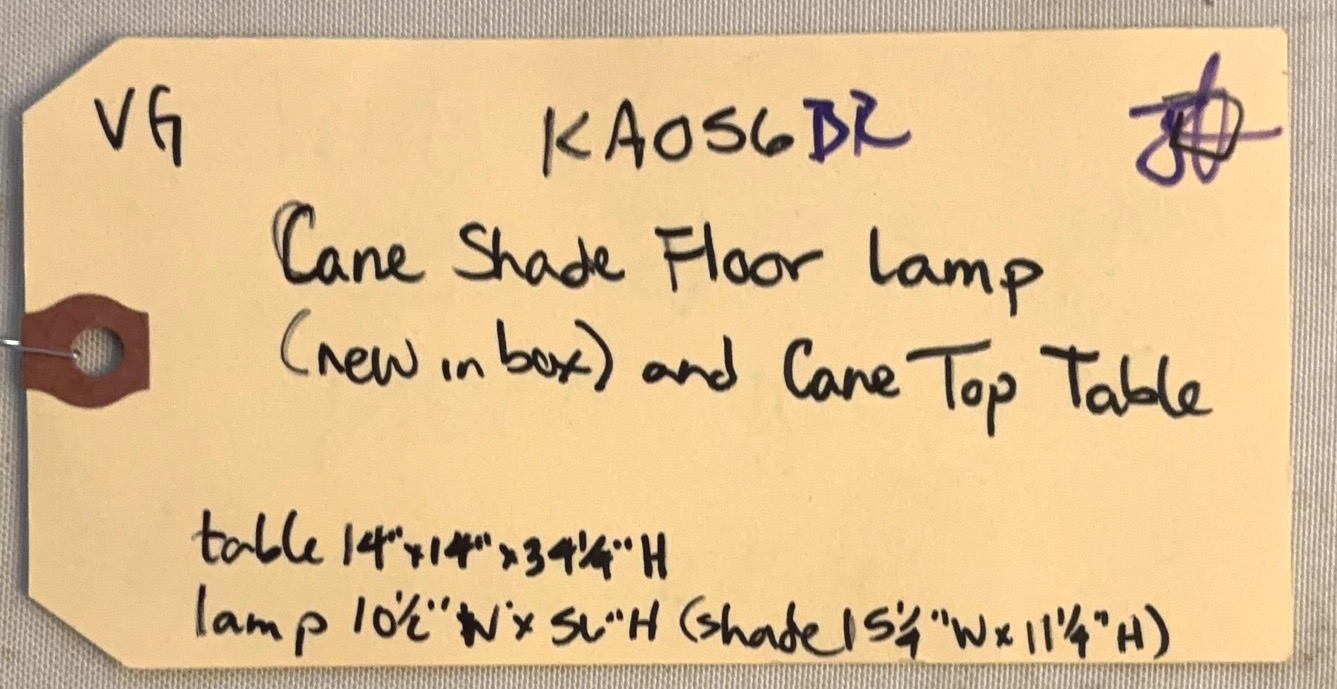 VG
KA056BR
Cane Shade Floor Lamp
(new in box) and Cane Top Table
table 14"x14"x34¼"H
lamp 10½"W x 56"H (shade 15¼"W x 11¼"H)